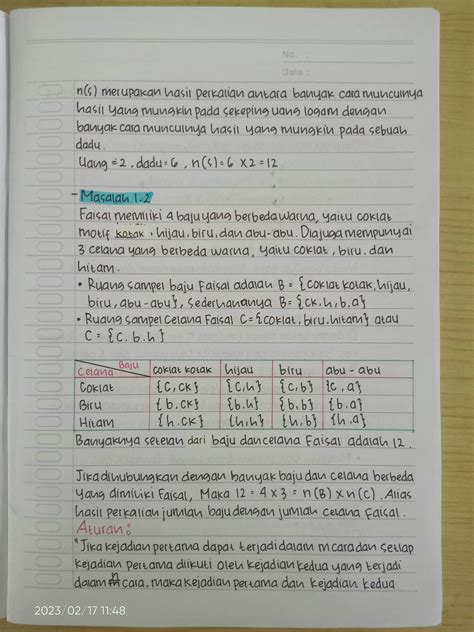 No. :
Date :
n(s) merupakan hasil perkalian antara banyak cara munculnya
hasil yang mungkin pada sekeping uang logam dengan
banyak cara munculnya hasil yang mungkin pada sebuah
dadu.
Uang = 2, dadu = 6, n(s) = 6 x 2 = 12
- Masalah 1.2
Faisal memiliki 4 baju yang berbeda warna, yaitu coklat
motif kotak, hijau, biru, dan abu-abu. Dia juga mempunyai
3 celana yang berbeda warna, yaitu coklat, biru, dan
hitam.
• Ruang sampel baju Faisal adalah B = {coklat kotak, hijau,
biru, abu-abu}, sederhananya B = {ck, h, b, a}
• Ruang sampel celana Faisal C = {coklat, biru, hitam} atau
C = {c, b, h}
Celana Baju coklat kotak hijau biru abu-abu
Coklat {c, ck} {c, h} {c, b} {c, a}
Biru {b, ck} {b, h} {b, b} {b, a}
Hitam {h, ck} {h, h} {h, b} {h, a}
Banyaknya setelan dari baju dan celana Faisal adalah 12.
Jika dihubungkan dengan banyak baju dan celana berbeda
yang dimiliki Faisal, Maka 12 = 4 x 3 = n(B) x n(C). Alias
hasil perkalian jumlah baju dengan jumlah celana Faisal.
Aturan :
"Jika kejadian pertama dapat terjadi dalam m cara dan setiap
kejadian pertama diikuti oleh kejadian kedua yang terjadi
dalam n cara, maka kejadian pertama dan kejadian kedua
2023/02/17 11:48